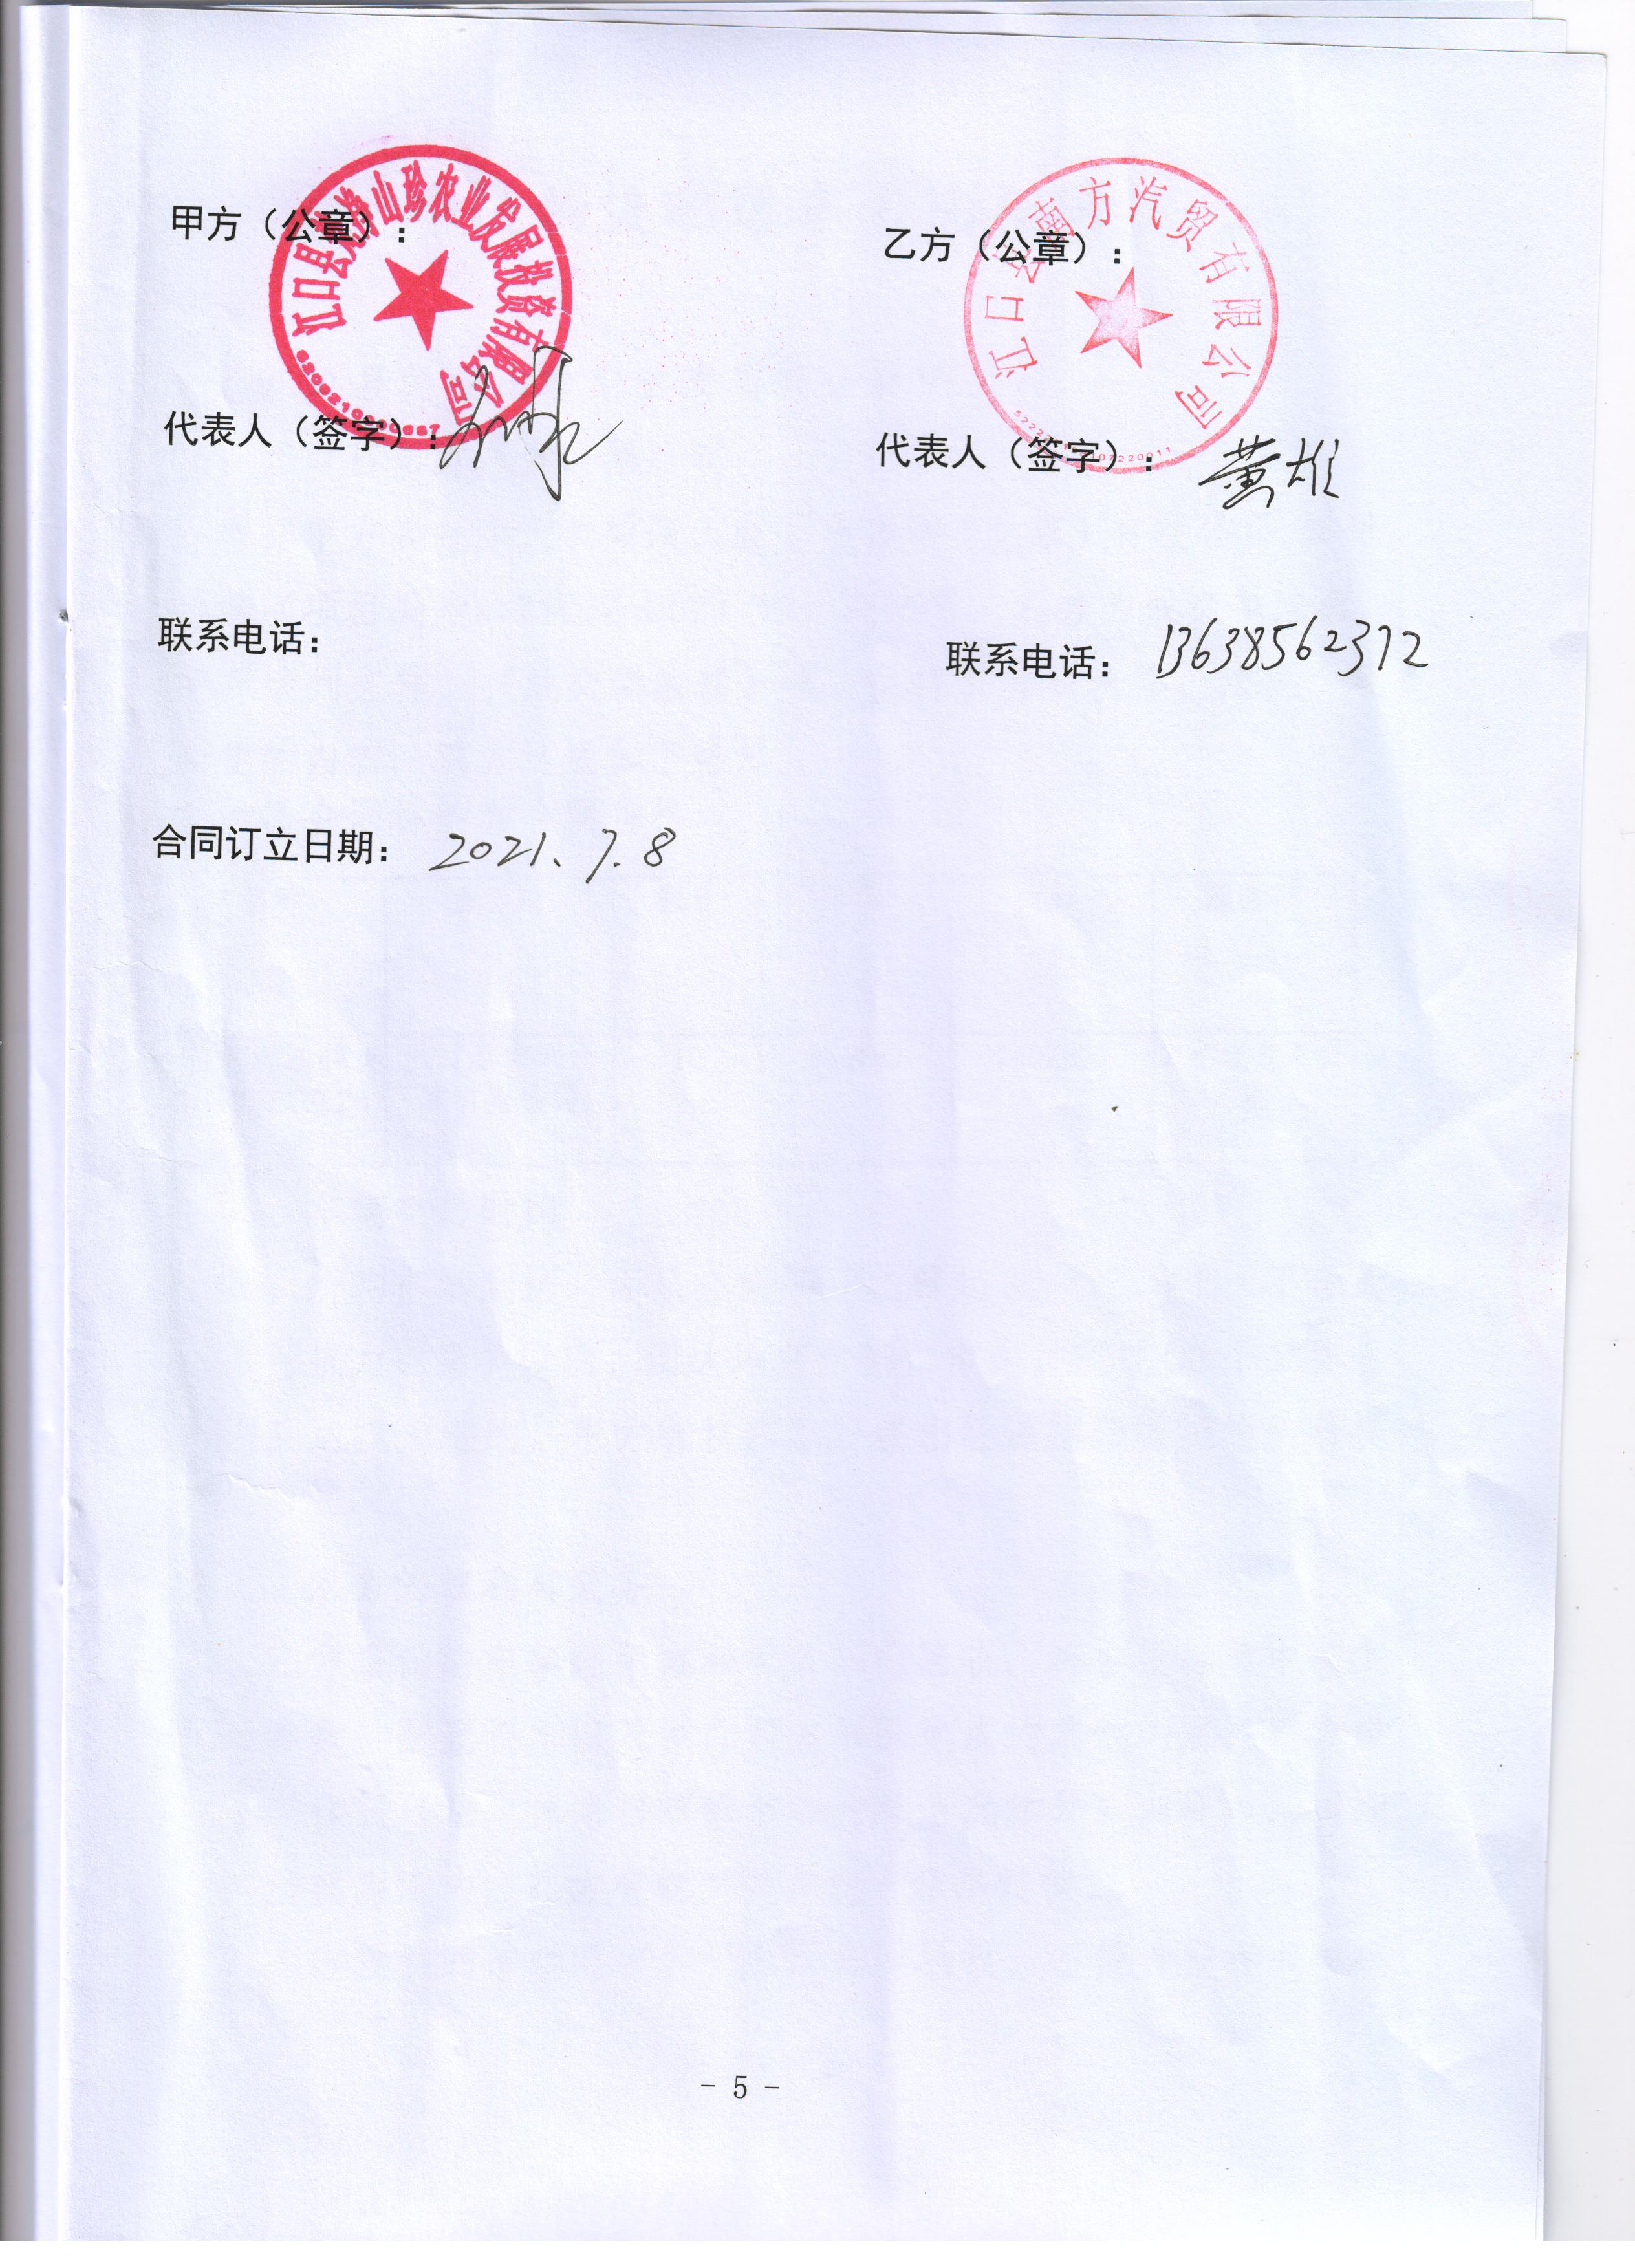 甲方（公章）：
江口县梵净山珍农业发展投资有限公司
乙方（公章）：
江口县南方汽贸有限公司
代表人（签字）：
代表人（签字）：黄雄
联系电话：
联系电话：13638562372
合同订立日期：2021、7.8
- 5 -